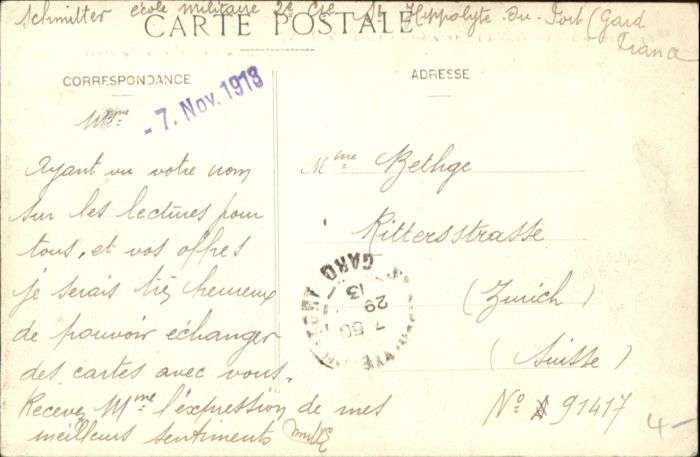 Schmitter école militaire 2e Cie St Hippolyte-du-Fort (Gard
CARTE POSTALE
CORRESPONDANCE
ADRESSE
- 7. Nov. 1913
Mme
Ayant vu votre nom
sur les lectures pour
tous, et vos offres
je serais très heureux
de pouvoir échanger
des cartes avec vous.
Recevez Mme l'expression de mes
meilleurs sentiments
Mme Bethge
Rittersstrasse
(Zurich)
(Suisse)
No 91417
GARD
7 50
29
13
4-